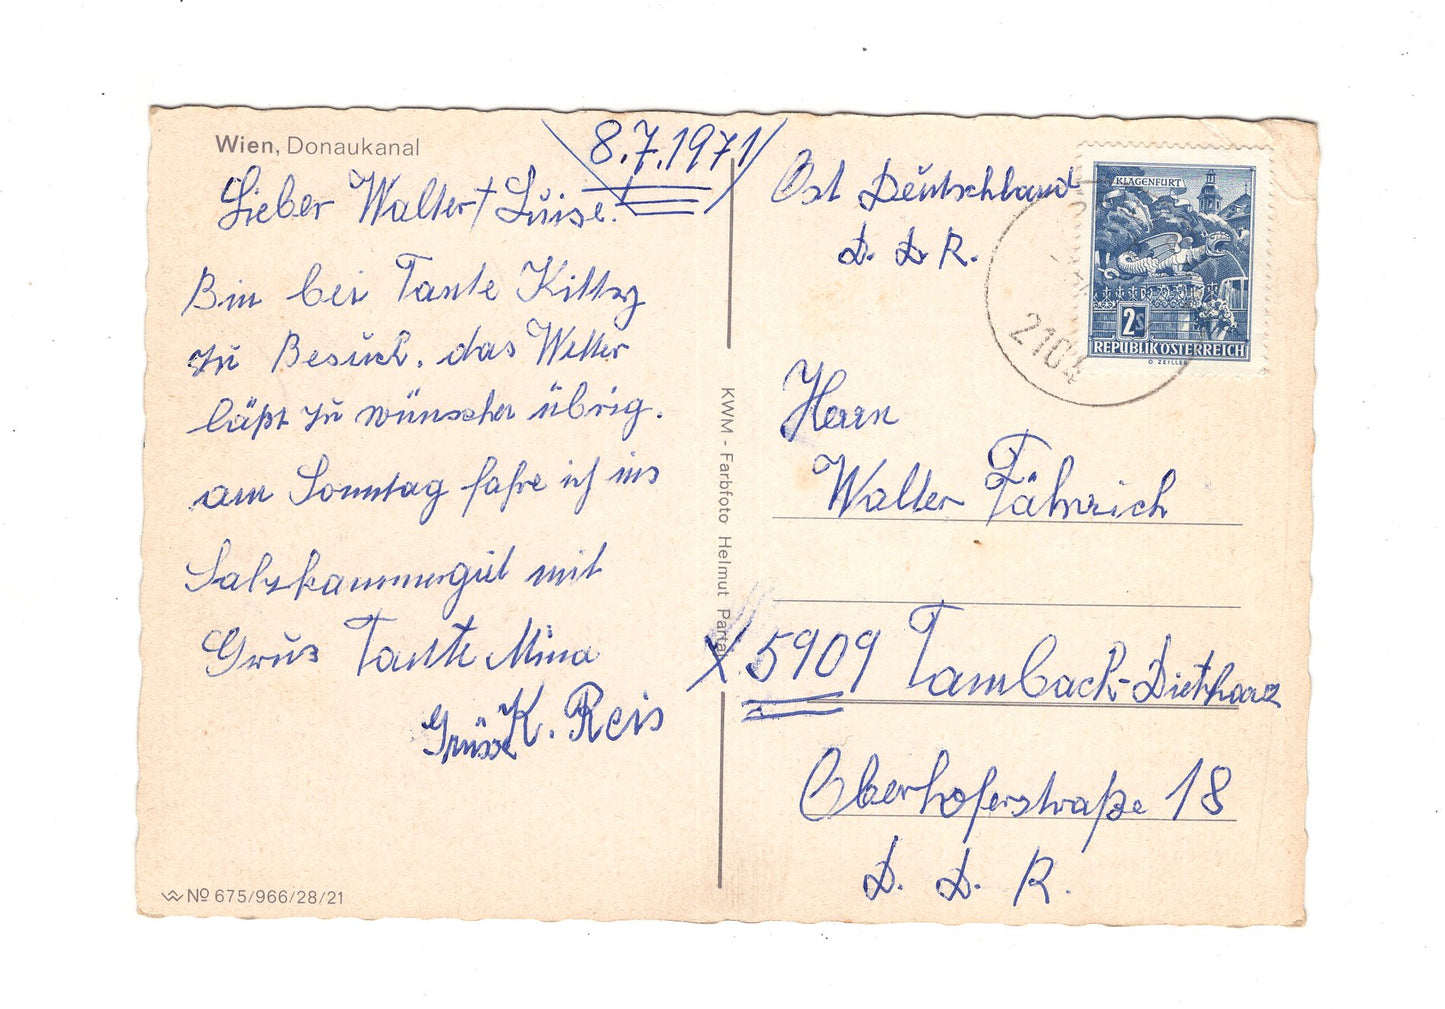 Wien, Donaukanal
8.7.1971
Lieber Walter + Luise!
Bin bei Tante Kitty
zu Besuch. das Wetter
läßt zu wünschen übrig.
am Sonntag fahre ich ins
Salzkammergut mit
Gruß Tante Mina
Grüsse K. Reis
WW No 675/966/28/21
KWM - Farbfoto Helmut Partaj
Ost Deutschland
D. D. R.
KLAGENFURT
2S
REPUBLIK ÖSTERREICH
O. ZEILLER
2104
Herrn
Walter Fähnrich
X 5909 Tambach-Dietharz
Oberhoferstraße 18
D. D. R.